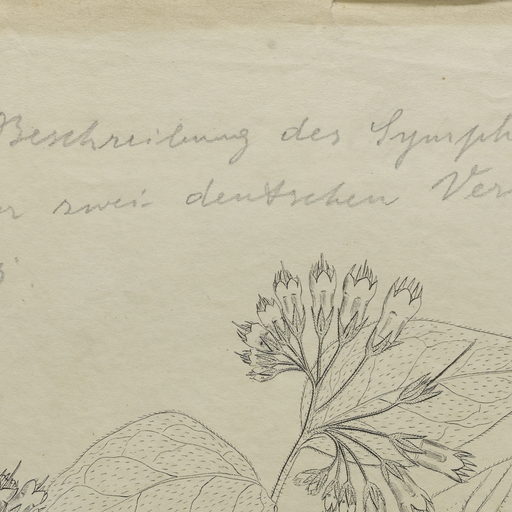 Beschreibung des Symph
er zwei deutschen Ver